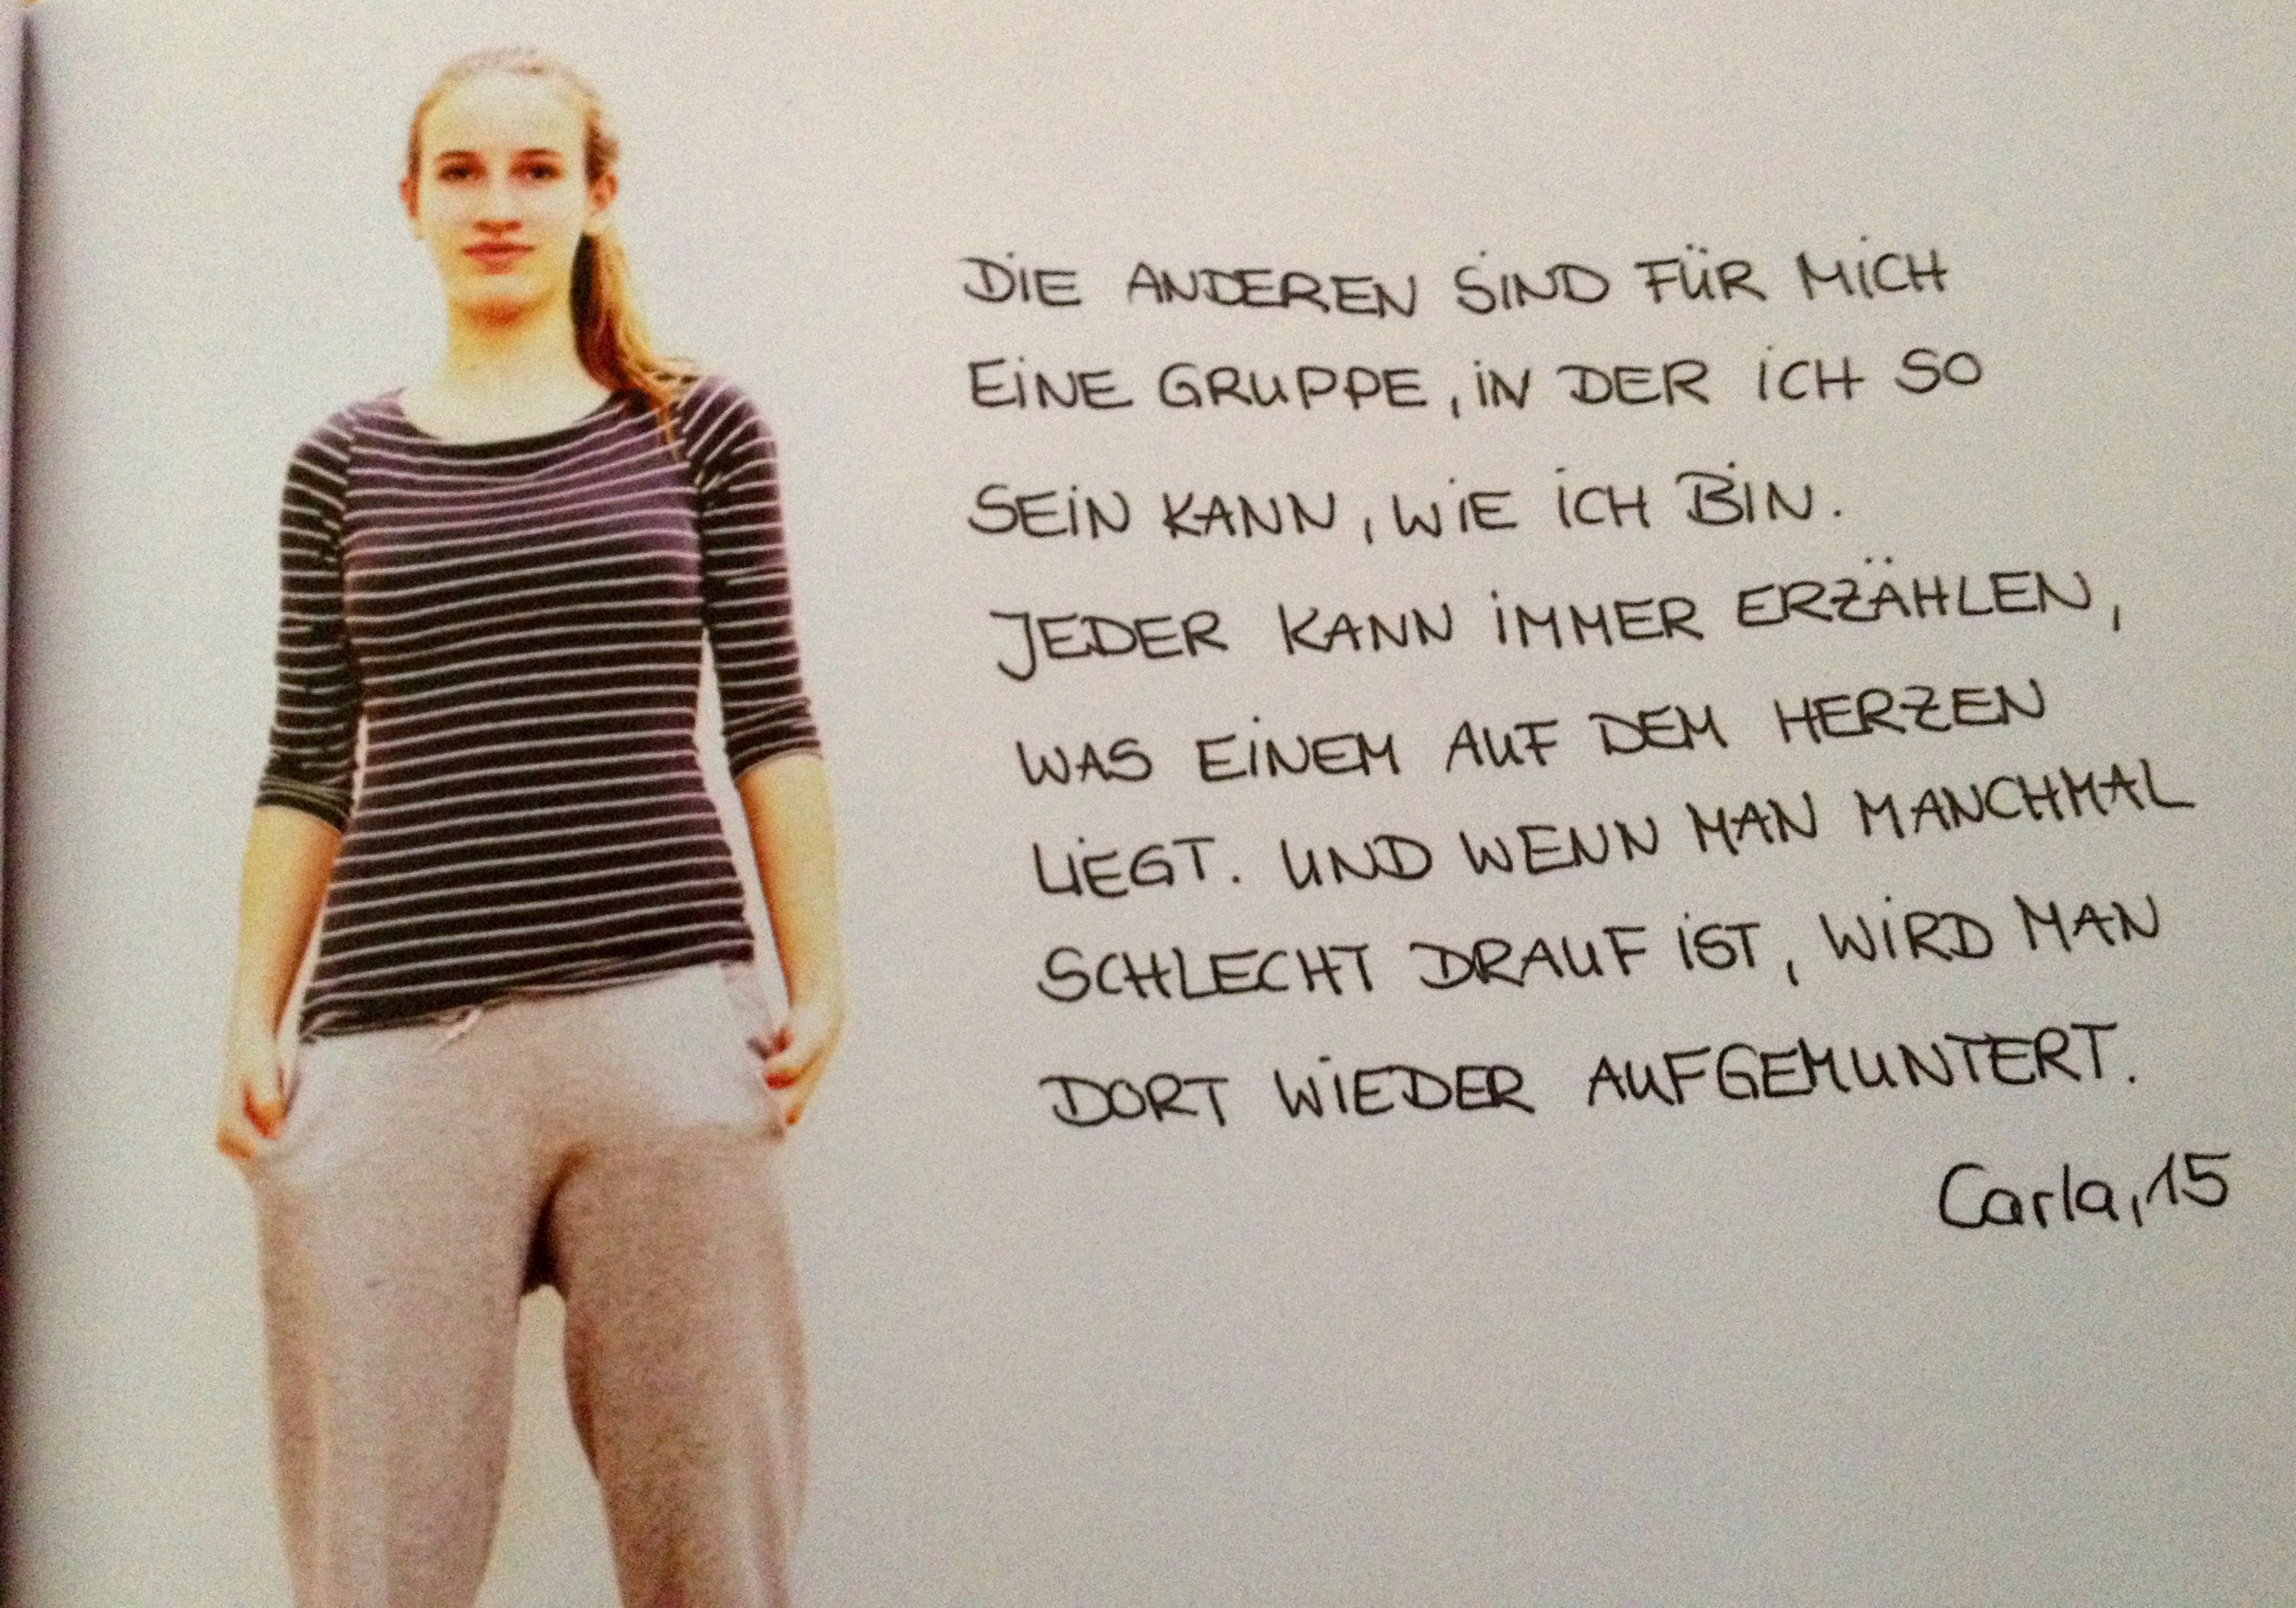 DIE ANDEREN SIND FÜR MICH
EINE GRUPPE, IN DER ICH SO
SEIN KANN, WIE ICH BIN.
JEDER KANN IMMER ERZÄHLEN,
WAS EINEM AUF DEM HERZEN
LIEGT. UND WENN MAN MANCHMAL
SCHLECHT DRAUF IST, WIRD MAN
DORT WIEDER AUFGEMUNTERT.
Carla, 15